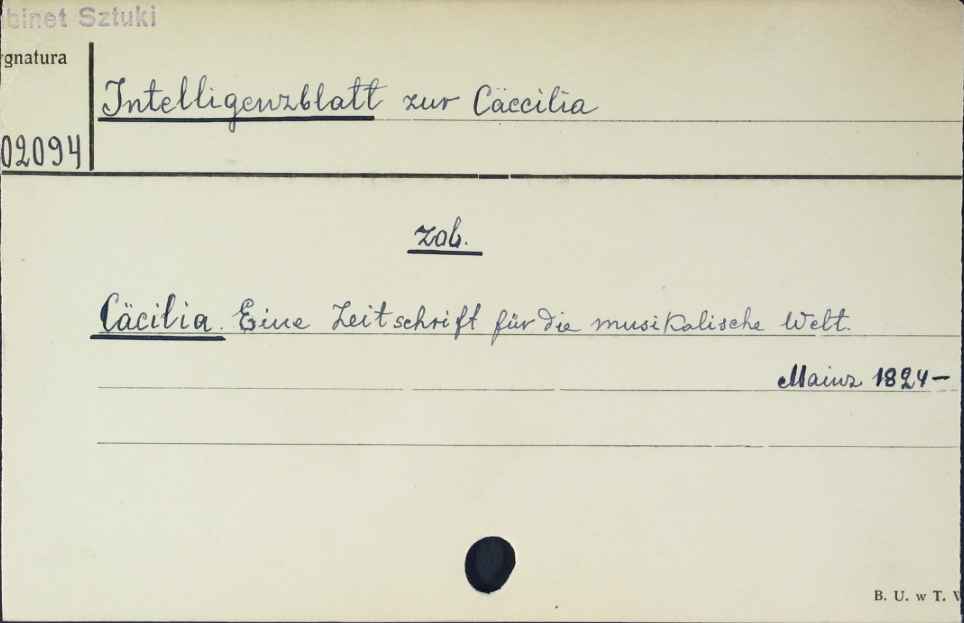 binet Sztuki
ygnatura
Intelligenzblatt zur Cäecilia
02094
zob.
Cäcilia. Eine Zeitschrift für die musikalische Welt.
Mainz 1824-
B. U. w T.